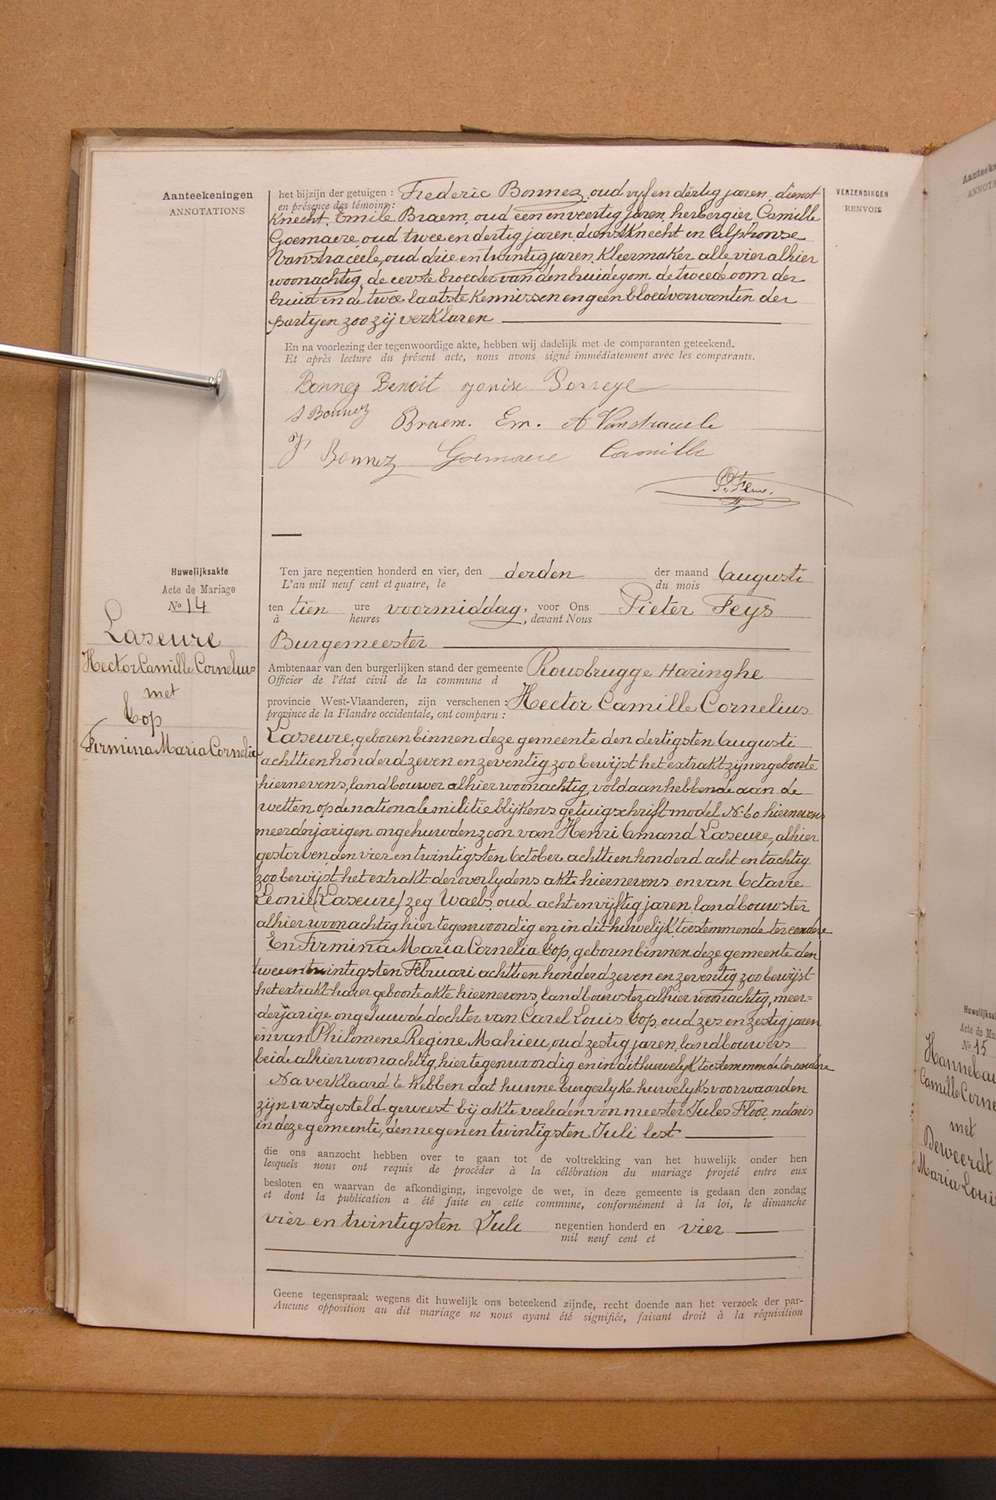 Aanteekeningen
ANNOTATIONS
VERZENDINGEN
RENVOIS
het bijzijn der getuigen : Frederic Bonnez, oud vijf en dertig jaren, dienst
en présence des témoins :
knecht, Emile Braem, oud een en veertig jaren, herbergier, Camille
Goemaere, oud twee en dertig jaren, dienstknecht en Alphonse
Vanstraceele, oud drie en twintig jaren, Kleermaker alle vier alhier
woonachtig, de eerste broeder van den bruidegom de tweede oom der
bruid en de twee laatste kennissen en geen bloedverwanten der
partijen zoo zij verklaren
En na voorlezing der tegenwoordige akte, hebben wij dadelijk met de comparanten geteekend.
Et après lecture du présent acte, nous avons signé immédiatement avec les comparants.
Bonnez Benoit
Bonnez Braem. Em. A Vanstraceele
Bonnez Goemaere Camille
P. Feys.
Huwelijksakte
Acte de Mariage
No 14
Laseure
Hector Camille Cornelius
met
Cop
Firmina Maria Cornelia
Ten jare negentien honderd en vier, den derden der maand Augusti
L'an mil neuf cent et quatre, le du mois
ten tien ure voormiddag, voor Ons Pieter Feys
à heures , devant Nous
Burgemeester
Ambtenaar van den burgerlijken stand der gemeente Rousbrugge Haringhe
Officier de l'état civil de la commune d
provincie West-Vlaanderen, zijn verschenen : Hector Camille Cornelius
province de la Flandre occidentale, ont comparu :
Laseure, geboren binnen deze gemeente den dertigsten Augusti
achttien honderd zeven en zeventig zoo bewijst het extrakt zijner geboorte
hiernevens, landbouwer alhier woonachtig, voldaan hebbende aan de
wetten op de nationale militie blijkens getuigschrift model No 60 hiernevens
meerderjarigen ongehuwden zoon van Henri Amand Laseure, alhier
gestorven den vier en twintigsten October achttien honderd acht en tachtig
zoo bewijst het extrakt der overlydens akte hiernevens en van Octavie
Leonie (Laseure) zeg Waels, oud acht en vyftig jaren landbouwster
alhier woonachtig hier tegenwoordig en in dit huwelijk toestemmende ter eendere
En Firmina Maria Cornelia Cop, geboren binnen deze gemeente den
twee en twintigsten Februari achttien honderd zeven en zeventig zoo bewijst
het extrakt harer geboorte akte hiernevens, landbouwster alhier woonachtig, meer=
derjarige ongehuwde dochter van Carel Louis Cop, oud zes en zestig jaren
en van Philomene Regine Mahieu, oud zestig jaren, landbouwers
beide alhier woonachtig, hier tegenwoordig en in dit huwelijk toestemmende ter andere
Na verklaard te hebben dat hunne burgerlyke huwelyksvoorwaarden
zijn vastgesteld geweest bij akte verleden voor meester Jules Floor, notaris
in deze gemeente, den negen en twintigsten Juli lest
die ons aanzocht hebben over te gaan tot de voltrekking van het huwelijk onder hen
lesquels nous ont requis de procéder à la célébration du mariage projeté entre eux
besloten en waarvan de afkondiging, ingevolge de wet, in deze gemeente is gedaan den zondag
et dont la publication a été faite en cette commune, conformément à la loi, le dimanche
vier en twintigsten Juli negentien honderd en vier
mil neuf cent et
Geene tegenspraak wegens dit huwelijk ons beteekend zijnde, recht doende aan het verzoek der par-
Aucune opposition au dit mariage ne nous ayant été signifiée, faisant droit à la réquisition
No 15
Camille Corne
met
Deweerdt
Maria Louis